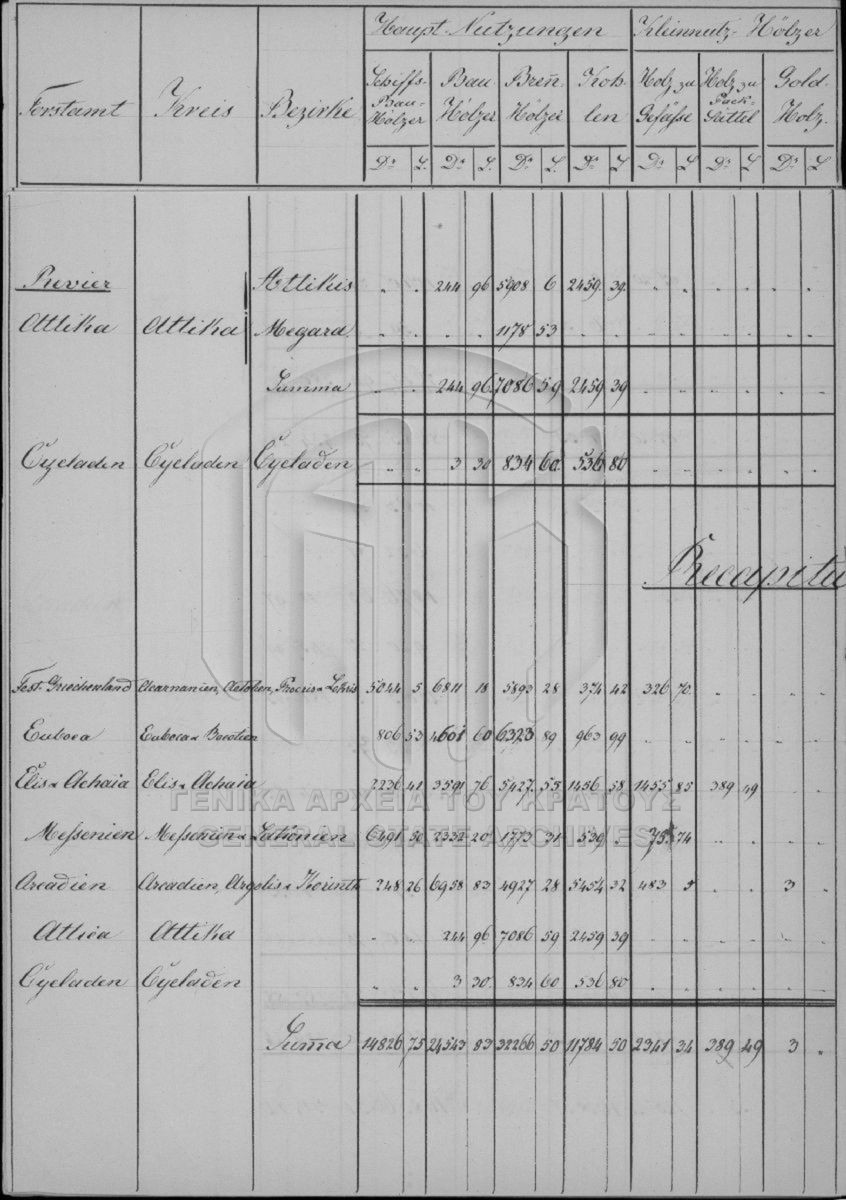 Haupt-Nutzungen Kleinnutz-Hölzer
Forstamt Kreis Bezirke Schiffs-Bau-Hölzer Bau Hölzer Breñ Hölzer Kohlen Holz zu Gefäße Holz zu Pack-Sättel Gold-Holz.
Dr L. Dr L. Dr L. Dr L Dr L Dr L Dr L
Revier Attikis „ „ 244 96 5908 6 2459 39. „ „ „ „ „ „
Attika Attika Megara. „ „ „ „ 1178 53 „ „ „ „ „ „ „ „
Summa „ „ 244 96. 7086 59 2459 39 „ „ „ „ „ „
Cycladen Cycladen Cycladen „ „ 3 30 834 60. 536 80 „ „ „ „ „ „
Recapitu
Fest. Griechenland Acarnanien, Aetolien, Phocis u Lokris 5044 5 6811 18 5893 28 374 42 326 70. „ „ „ „
Euboea Euboea u Boeotien 806 53 4601 60 6323 89 963 99 „ „ „ „ „ „
Elis u Achaia Elis u Achaia 2236 41 3591 76 5427. 55 1456 58 1455 85 389 49 „ „
Meßenien Meßenien u Lakonien 6491 50 2332 20 1773 31 539 „ 75 74 „ „ „ „
Arcadien Arcadien, Argolis u Korinth 248 26 6958 83 4927 28 5454 32 483 5 „ „ 3 „
Attica Attika „ „ 244 96 7086 59 2459 39 „ „ „ „ „ „
Cycladen Cycladen „ „ 3 30. 834 60 536 80 „ „ „ „ „ „
Sum̄a 14826 75 24543 83 32266 50 11784 50 2341 34 389 49 3 „
ΓΕΝΙΚΑ ΑΡΧΕΙΑ ΤΟΥ ΚΡΑΤΟΥΣ
GENERAL STATE ARCHIVES